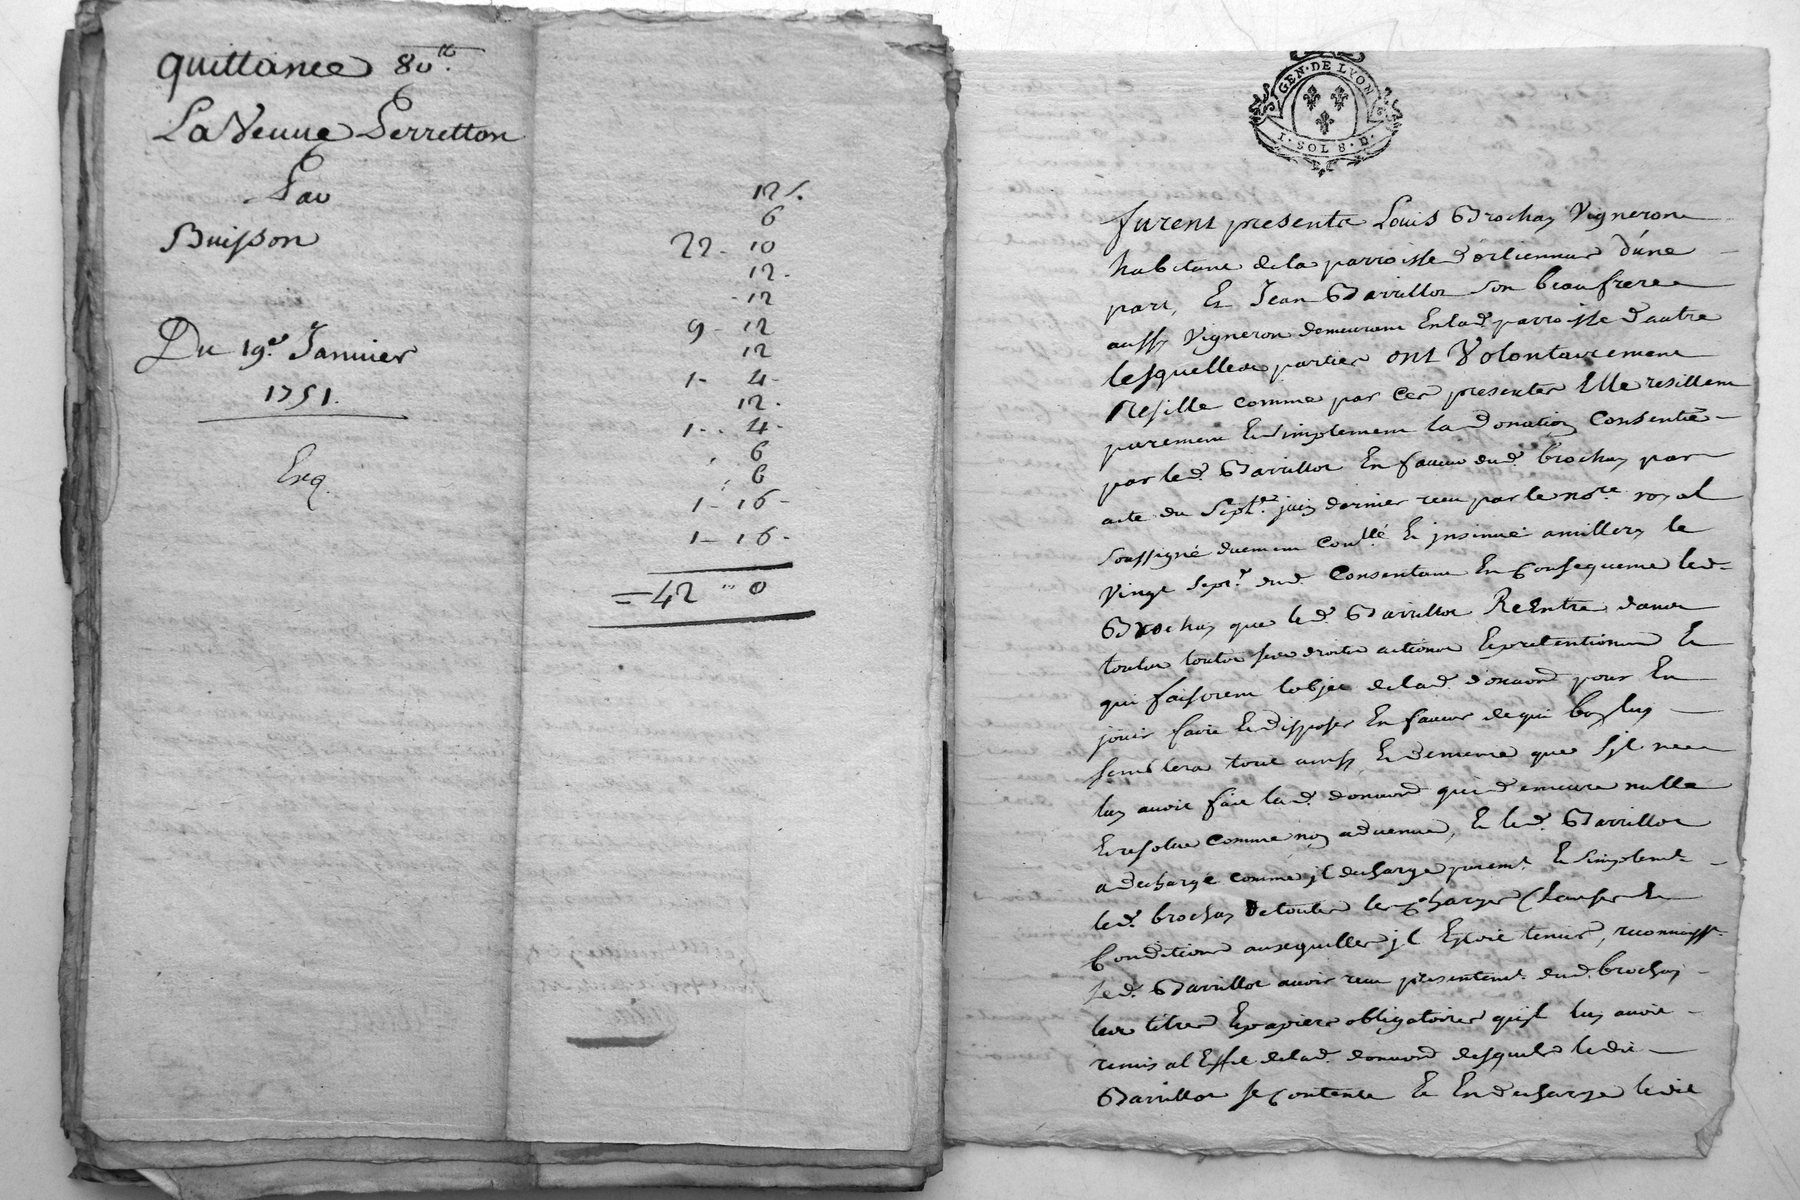 quittance 80ᵗᵗ.
La Veuve Perretton
Par
Buisson
Du 19.ᵉ Janvier
1751.
Exq.
12 s.
6
22 - 10
12 -
- 12
9 - 12
12
1 - 4 -
12 -
1 - - 4 -
6
6
1 - 16 -
1 - 16 -
= 42 " 0
GEN · DE LYON
I · SOL 8 · D ·
furent presents Louis Brochay Vigneron
habitant de la parroisse d'orliennas d'une
part, Et Jean Barrillot son beaufrere
aussy Vigneron demeurant En lad. parroisse d'autre
lesquelles parties ont Volontairement
Resillé comme par ces presentes Elle resillent
purement Et simplement la donation Consentie
par led. Barrillot En faveur dud. brochay par
acte du Sept.ᵉ juin dernier receu par le no.ʳᵉ royal
soussigné duement con.ˡˡé Et jnsinué le
Vingt sept.ᵉ dud. Consentant En Consequence led.
Brochay que led. Barrillot ReEntre dans
toutes toutes ses droits actions Et pretentions Et
qui faisoient l'objet de lad. donaon pour En
jouir faire Et disposer En faveur de qui bon luy
semblera tout ainsy Et de meme que s'jl ne
luy avoit fait lad. donaon qui demeure nulle
Et resolue comme non advenue, Et led. Barrillot
a dechargé comme jl decharge purem.ᵗ Et simplem.ᵗ
led. brochay de toutes les Charges Clauses Et
Conditions ausequelles jl Estoit tenus, reconnoiss.ᵗ
led. Barrillot avoir receu presentem.ᵗ dud. brochay
les titres Et papiers obligatoires qu'jl luy avoit
remis al Effet de lad. donaon desquels ledit
Barrillot se Contente Et En decharge ledit